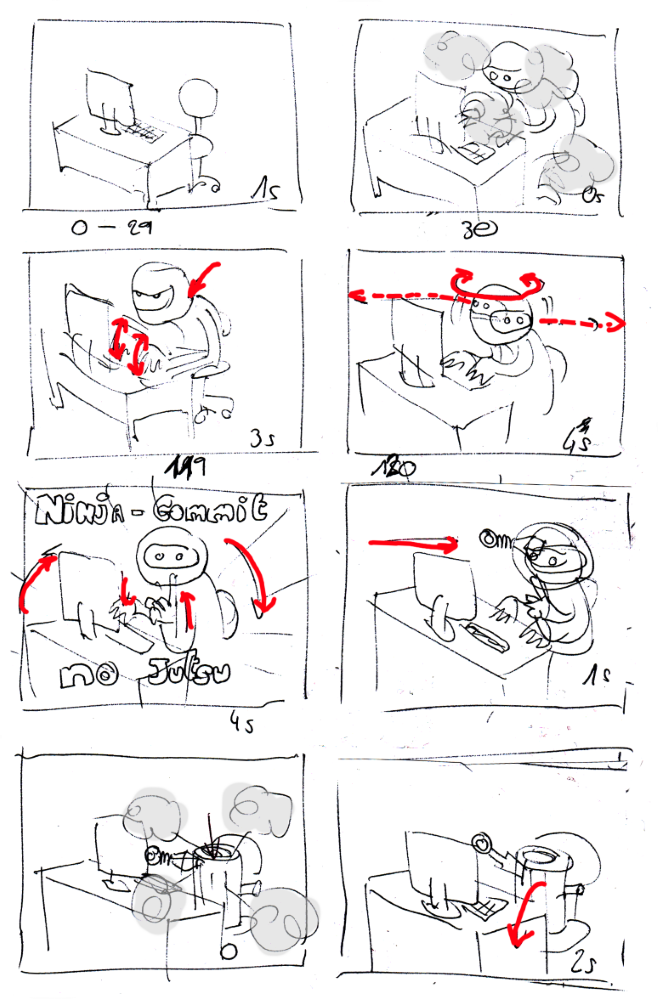 1s
0s
0 - 29
30
3s
4s
119
120
Ninja - Commit
no Jutsu
4s
1s
0
2s